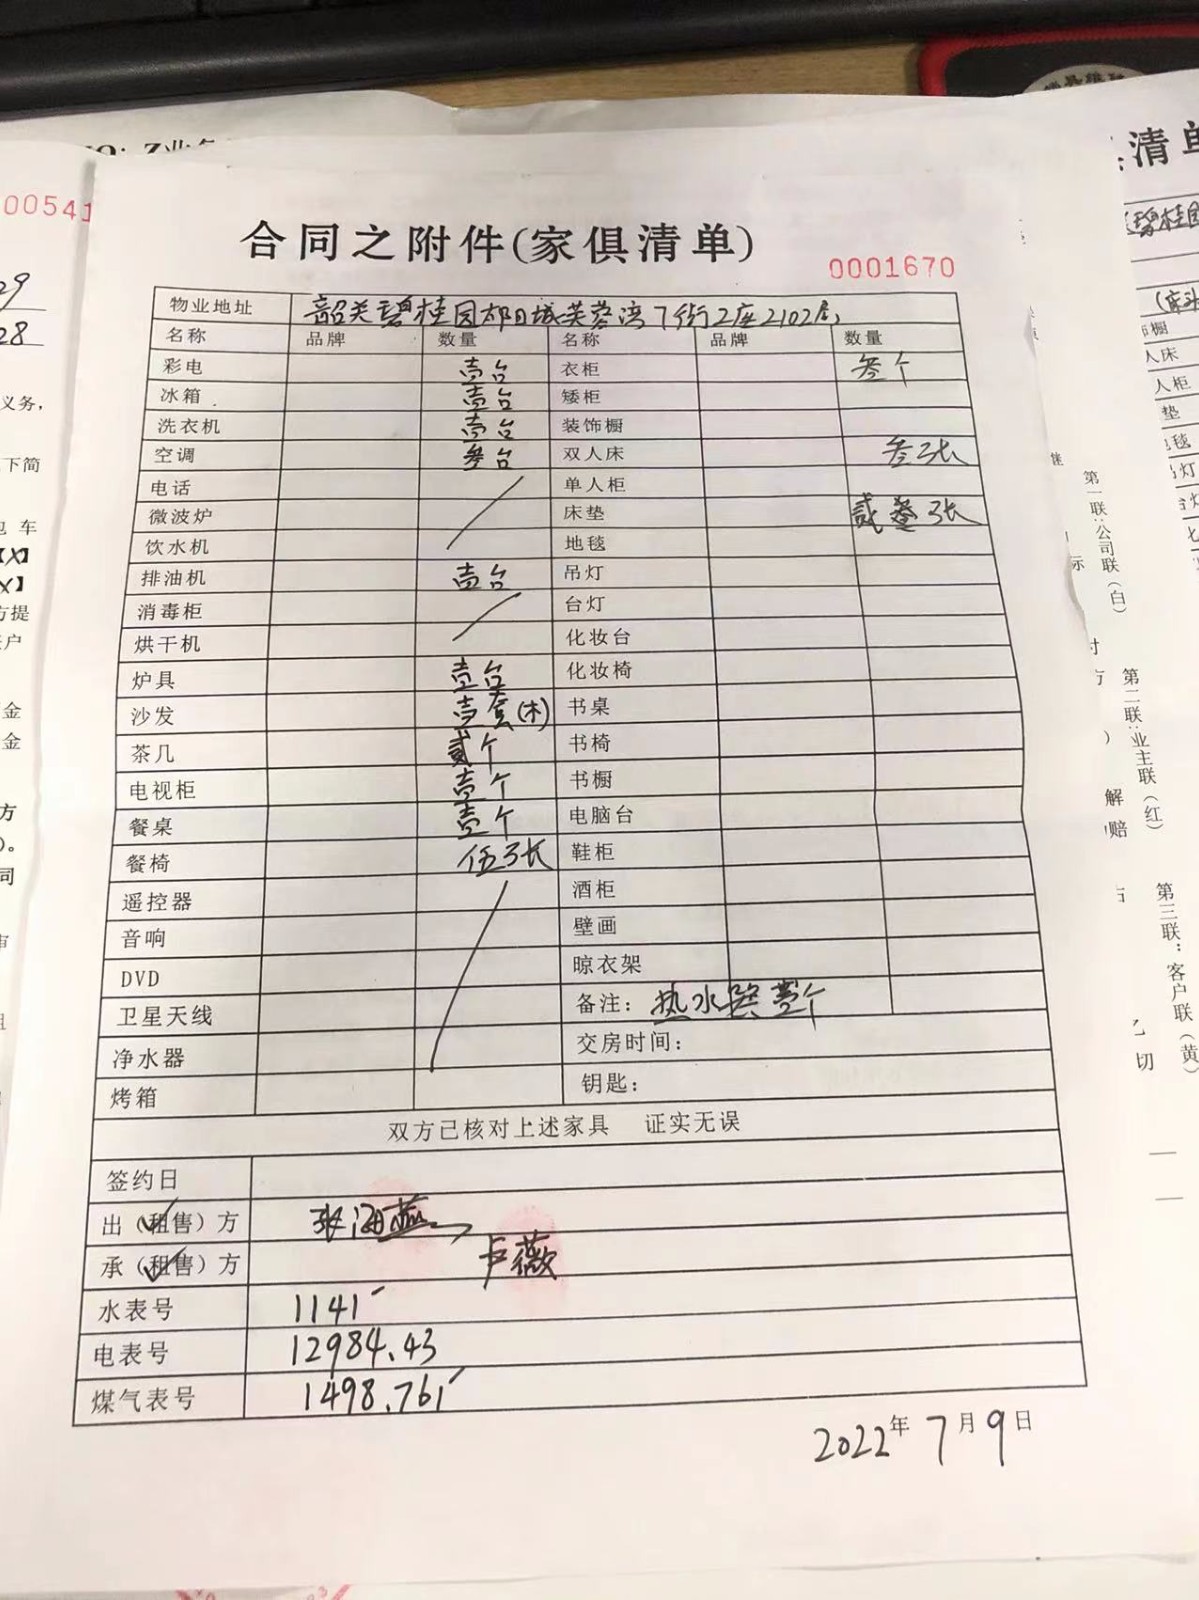 00541
合同之附件(家俱清单)
0001670
物业地址 韶关碧桂园太阳城芙蓉湾7街2座2102房
名称 品牌 数量 名称 品牌 数量
彩电 壹台 衣柜 叁个
冰箱 壹台 矮柜
洗衣机 壹台 装饰橱
空调 叁台 双人床 叁张
电话 单人柜
微波炉 床垫 贰叁张
饮水机 地毯
排油机 壹台 吊灯
消毒柜 台灯
烘干机 化妆台
炉具 壹台 化妆椅
沙发 壹套(木) 书桌
茶几 贰个 书椅
电视柜 壹个 书橱
餐桌 壹个 电脑台
餐椅 伍张 鞋柜
遥控器 酒柜
音响 壁画
DVD 晾衣架
卫星天线 备注: 热水器壹个
净水器 交房时间:
烤箱 钥匙:
双方已核对上述家具 证实无误
签约日
出(租售)方 张海燕
承(租售)方 卢薇
水表号 1141
电表号 12984.43
煤气表号 1498.761
2022年7月9日
第一联:公司联(白)
第二联:业主联(红)
第三联:客户联(黄)
清单
碧桂园